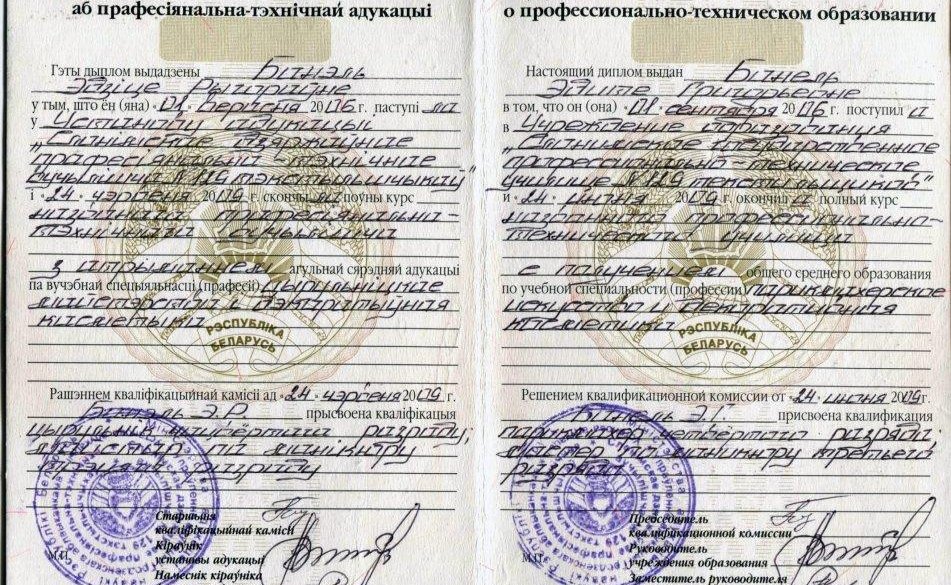 аб прафесіянальна-тэхнічнай адукацыі
Гэты дыплом выдадзены
у тым, што ён (яна) «01 верасня 2006 г. паступіла
у Установу адукацыі
прафесіянальна-тэхнічнае
вучылішча №129 тэкстыльшчыкаў"
і «24 чэрвеня 2009 г. скончыла поўны курс
названага прафесіянальна-
тэхнічнага вучылішча
з атрыманнем агульнай сярэдняй адукацыі
па вучэбнай спецыяльнасці (прафесіі) цырульніцкае
мастацтва і дэкаратыўная
касметыка
РЭСПУБЛІКА
БЕЛАРУСЬ
Рашэннем кваліфікацыйнай камісіі ад «24 чэрвеня 2009 г.
прысвоена кваліфікацыя
цырульнік чацвёртага разраду,
майстар па манікюру
трэцяга разраду
Старшыня
кваліфікацыйнай камісіі
Кіраўнік
установы адукацыі
Намеснік кіраўніка
о профессионально-техническом образовании
Настоящий диплом выдан
Григорьевне
в том, что он (она) «01 сентября 2006 г. поступила
в Учреждение образования
государственное
профессионально-техническое
училище №129 текстильщиков"
и «24 июня 2009 г. окончила полный курс
названного профессионально-
технического училища
с получением общего среднего образования
по учебной специальности (профессии) парикмахерское
искусство и декоративная
косметика
РЭСПУБЛІКА
БЕЛАРУСЬ
Решением квалификационной комиссии от «24 июня 2009 г.
присвоена квалификация
парикмахер четвёртого разряда;
мастер по маникюру третьего
разряда
Председатель
квалификационной комиссии
Руководитель
учреждения образования
Заместитель руководителя